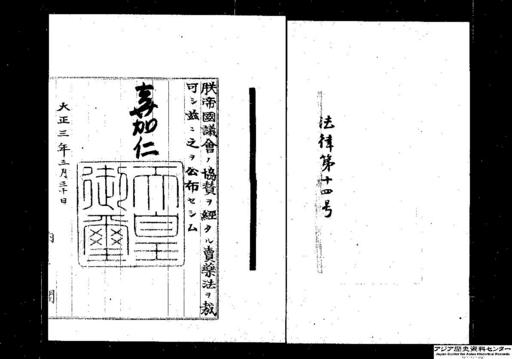 法律第十四号
朕帝國議會ノ協賛ヲ經タル賣藥法ヲ裁
可シ茲ニ之ヲ公布セシム
嘉仁
天皇
御璽
大正三年三月三十日
内閣
アジア歴史資料センター
Japan Center for Asian Historical Records